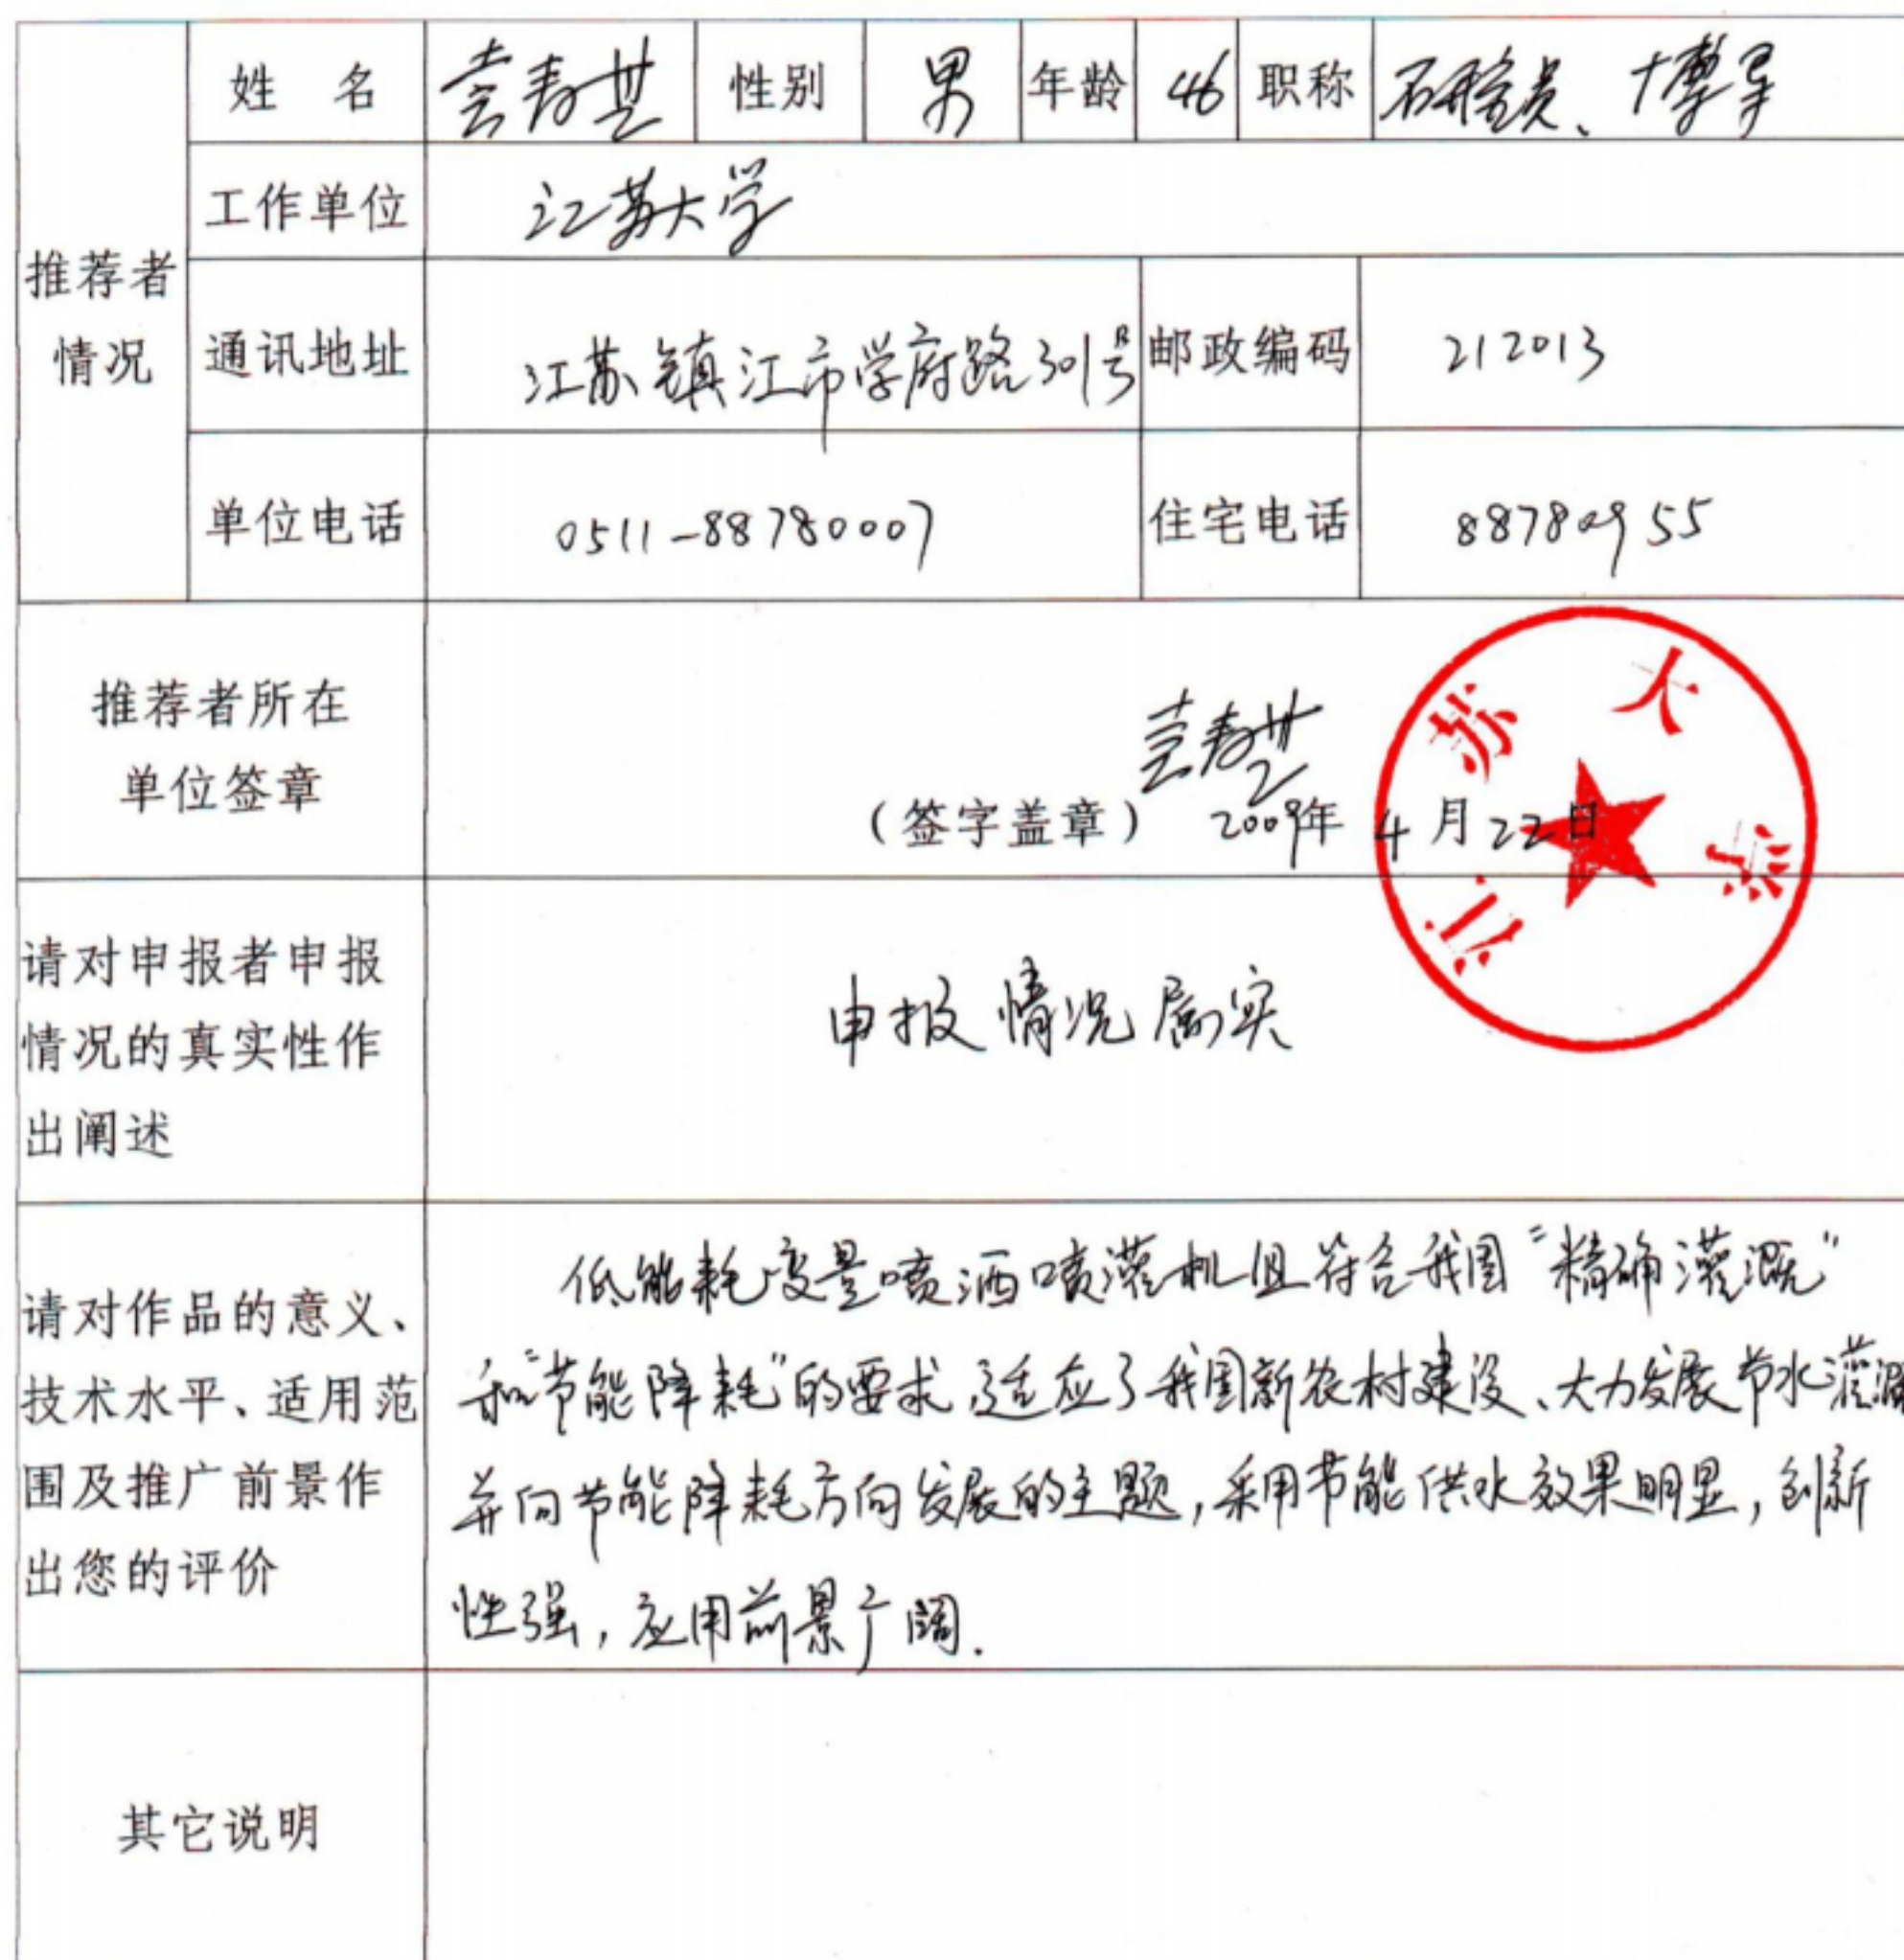 姓 名 袁寿其 性别 男 年龄 46 职称 研究员、博导
工作单位 江苏大学
推荐者
情况
通讯地址 江苏镇江市学府路301号 邮政编码 212013
单位电话 0511-88780007 住宅电话 88780955
推荐者所在
单位签章
袁寿其
(签字盖章) 2009年 4月22日
江苏大学
请对申报者申报
情况的真实性作
出阐述
申报情况属实
请对作品的意义、
技术水平、适用范
围及推广前景作
出您的评价
低能耗变量喷洒喷灌机组符合我国“精确灌溉”
和“节能降耗”的要求,适应了我国新农村建设、大力发展节水灌溉
并向节能降耗方向发展的主题,采用节能供水效果明显,创新
性强,应用前景广阔.
其它说明